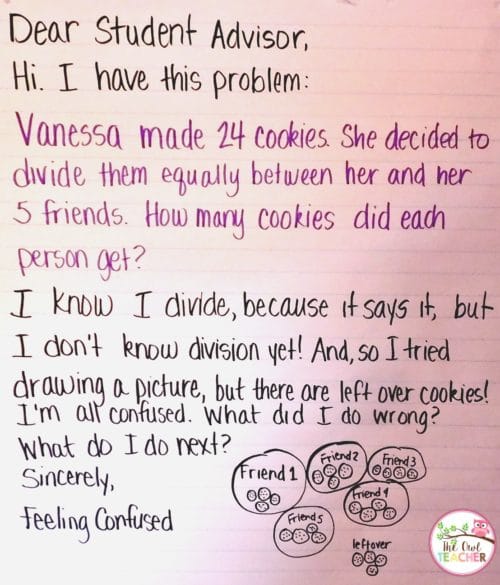 Dear Student Advisor,
Hi. I have this problem:
Vanessa made 24 cookies. She decided to
divide them equally between her and her
5 friends. How many cookies did each
person get?
I know I divide, because it says it, but
I don't know division yet! And, so I tried
drawing a picture, but there are left over cookies!
I'm all confused. What did I do wrong?
What do I do next?
Sincerely,
Feeling Confused
Friend 1
Friend 2
Friend 3
Friend 4
Friend 5
leftover
The Owl
TEACHER